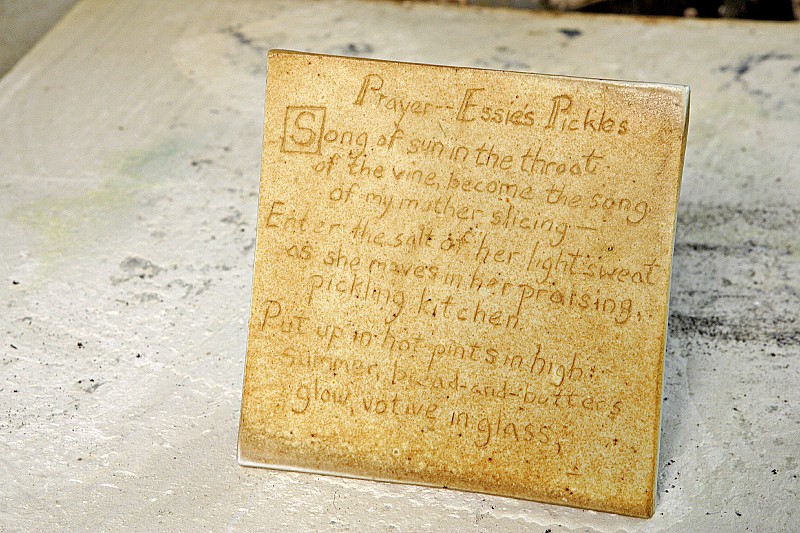 Prayer--Essie's Pickles
Song of sun in the throat
of the vine, become the song
of my mother slicing—
Enter the salt of her light sweat
as she moves in her praising,
pickling kitchen.
Put up in hot pints in high
summer, bread-and-butters
glow, votive in glass,